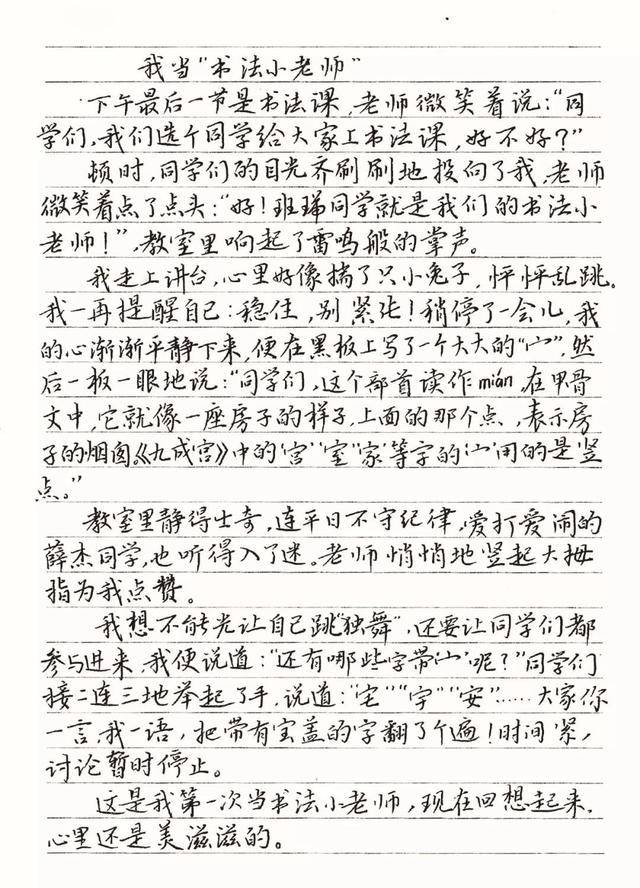 我当“书法小老师”
下午最后一节是书法课,老师微笑着说:“同
学们,我们选个同学给大家上书法课,好不好?”
顿时,同学们的目光齐刷刷地投向了我,老师
微笑着点了点头:“好!班瑞同学就是我们的书法小
老师!”,教室里响起了雷鸣般的掌声。
我走上讲台,心里好像揣了只小兔子,怦怦乱跳。
我一再提醒自己:稳住,别紧张!稍停了一会儿,我
的心渐渐平静下来,便在黑板上写了一个大大的“宀”,然
后一板一眼地说:“同学们,这个部首读作mián,在甲骨
文中,它就像一座房子的样子,上面的那个点,表示房
子的烟囱。《九成宫》中的‘宫’‘室’‘家’等字的‘宀’用的是竖
点。”
教室里静得出奇,连平日不守纪律,爱打爱闹的
薛杰同学,也听得入了迷。老师悄悄地竖起大拇
指为我点赞。
我想不能光让自己跳“独舞”,还要让同学们都
参与进来,我便说道:“还有哪些字带‘宀’呢?”同学们
接二连三地举起了手,说道:“宅”“字”“安”……大家你
一言,我一语,把带有宝盖的字翻了个遍!时间紧,
讨论暂时停止。
这是我第一次当书法小老师,现在回想起来,
心里还是美滋滋的。